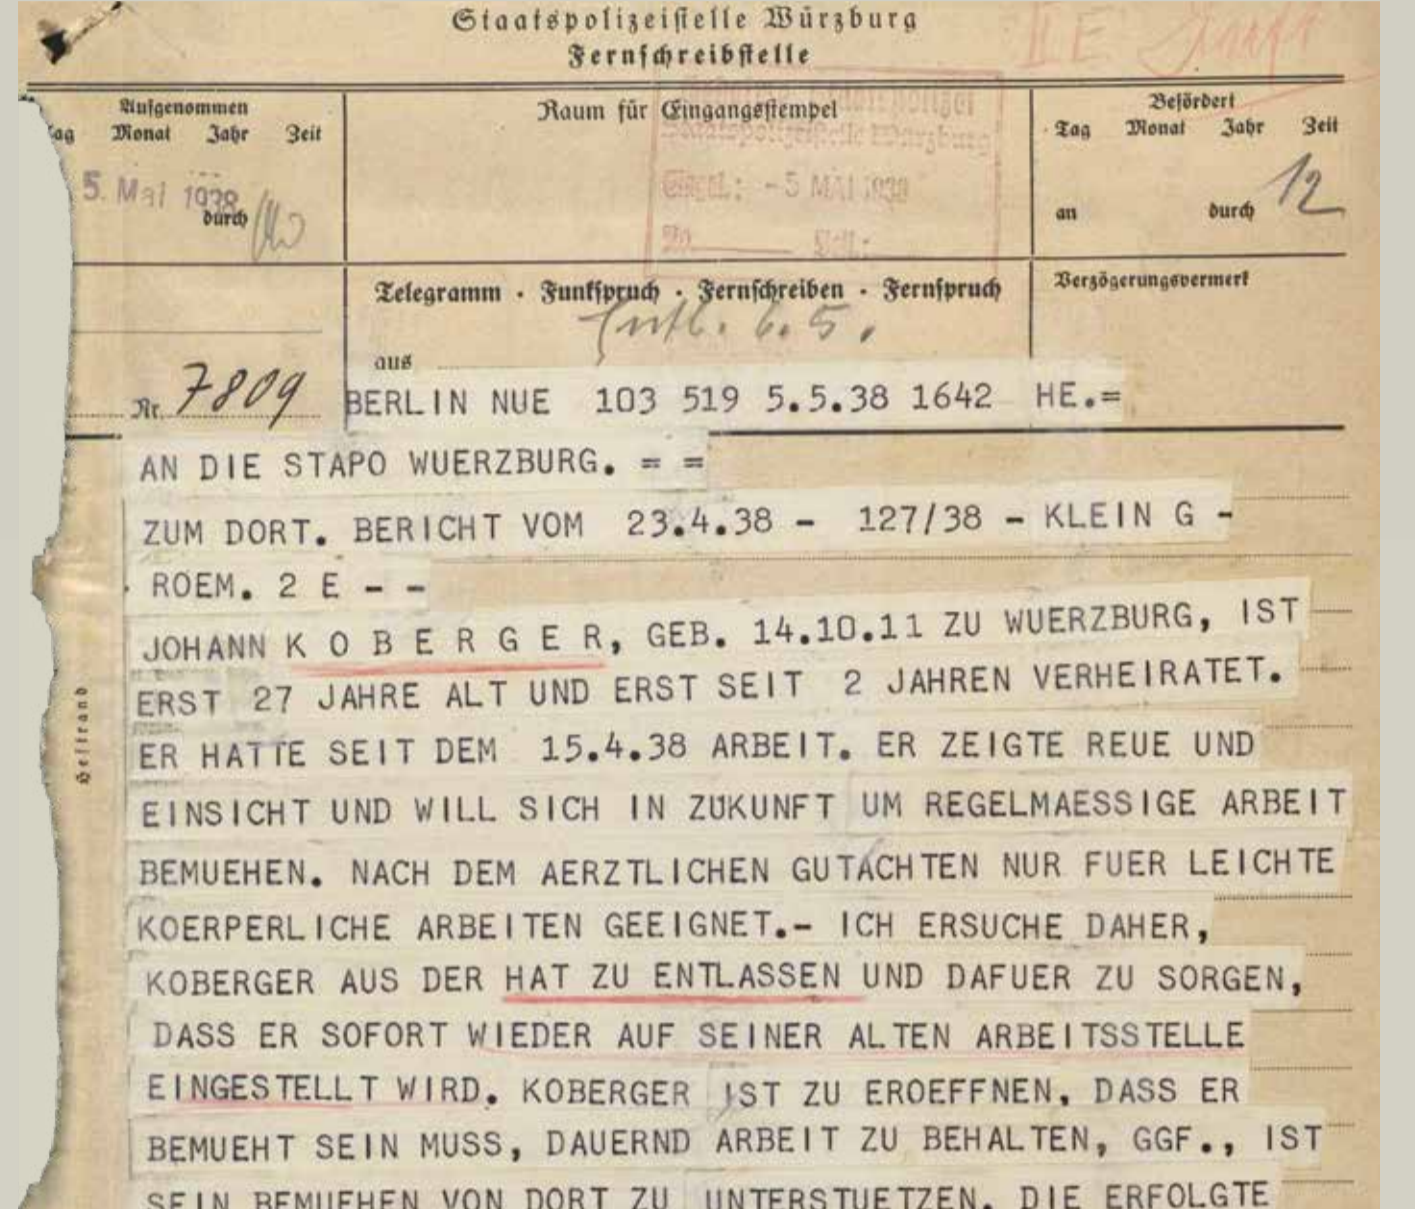 Staatspolizeistelle Würzburg
Fernschreibstelle
II E
Aufgenommen
Tag Monat Jahr Zeit
5. Mai 1938
durch
Raum für Eingangsstempel
Staatspolizeistelle Würzburg
Eingel.: - 5 MAI 1938
Befördert
Tag Monat Jahr Zeit
12
an durch
Telegramm · Funkspruch · Fernschreiben · Fernspruch
Verzögerungsvermerk
Entl. 6.5.
aus
Nr. 7809
BERLIN NUE 103 519 5.5.38 1642 HE.=
AN DIE STAPO WUERZBURG. = =
ZUM DORT. BERICHT VOM 23.4.38 - 127/38 - KLEIN G -
ROEM. 2 E - -
JOHANN K O B E R G E R, GEB. 14.10.11 ZU WUERZBURG, IST
ERST 27 JAHRE ALT UND ERST SEIT 2 JAHREN VERHEIRATET.
ER HATTE SEIT DEM 15.4.38 ARBEIT. ER ZEIGTE REUE UND
EINSICHT UND WILL SICH IN ZUKUNFT UM REGELMAESSIGE ARBEIT
BEMUEHEN. NACH DEM AERZTLICHEN GUTACHTEN NUR FUER LEICHTE
KOERPERLICHE ARBEITEN GEEIGNET.- ICH ERSUCHE DAHER,
KOBERGER AUS DER HAT ZU ENTLASSEN UND DAFUER ZU SORGEN,
DASS ER SOFORT WIEDER AUF SEINER ALTEN ARBEITSSTELLE
EINGESTELLT WIRD. KOBERGER IST ZU EROEFFNEN, DASS ER
BEMUEHT SEIN MUSS, DAUERND ARBEIT ZU BEHALTEN, GGF., IST
SEIN BEMUEHEN VON DORT ZU UNTERSTUETZEN. DIE ERFOLGTE
Heftrand